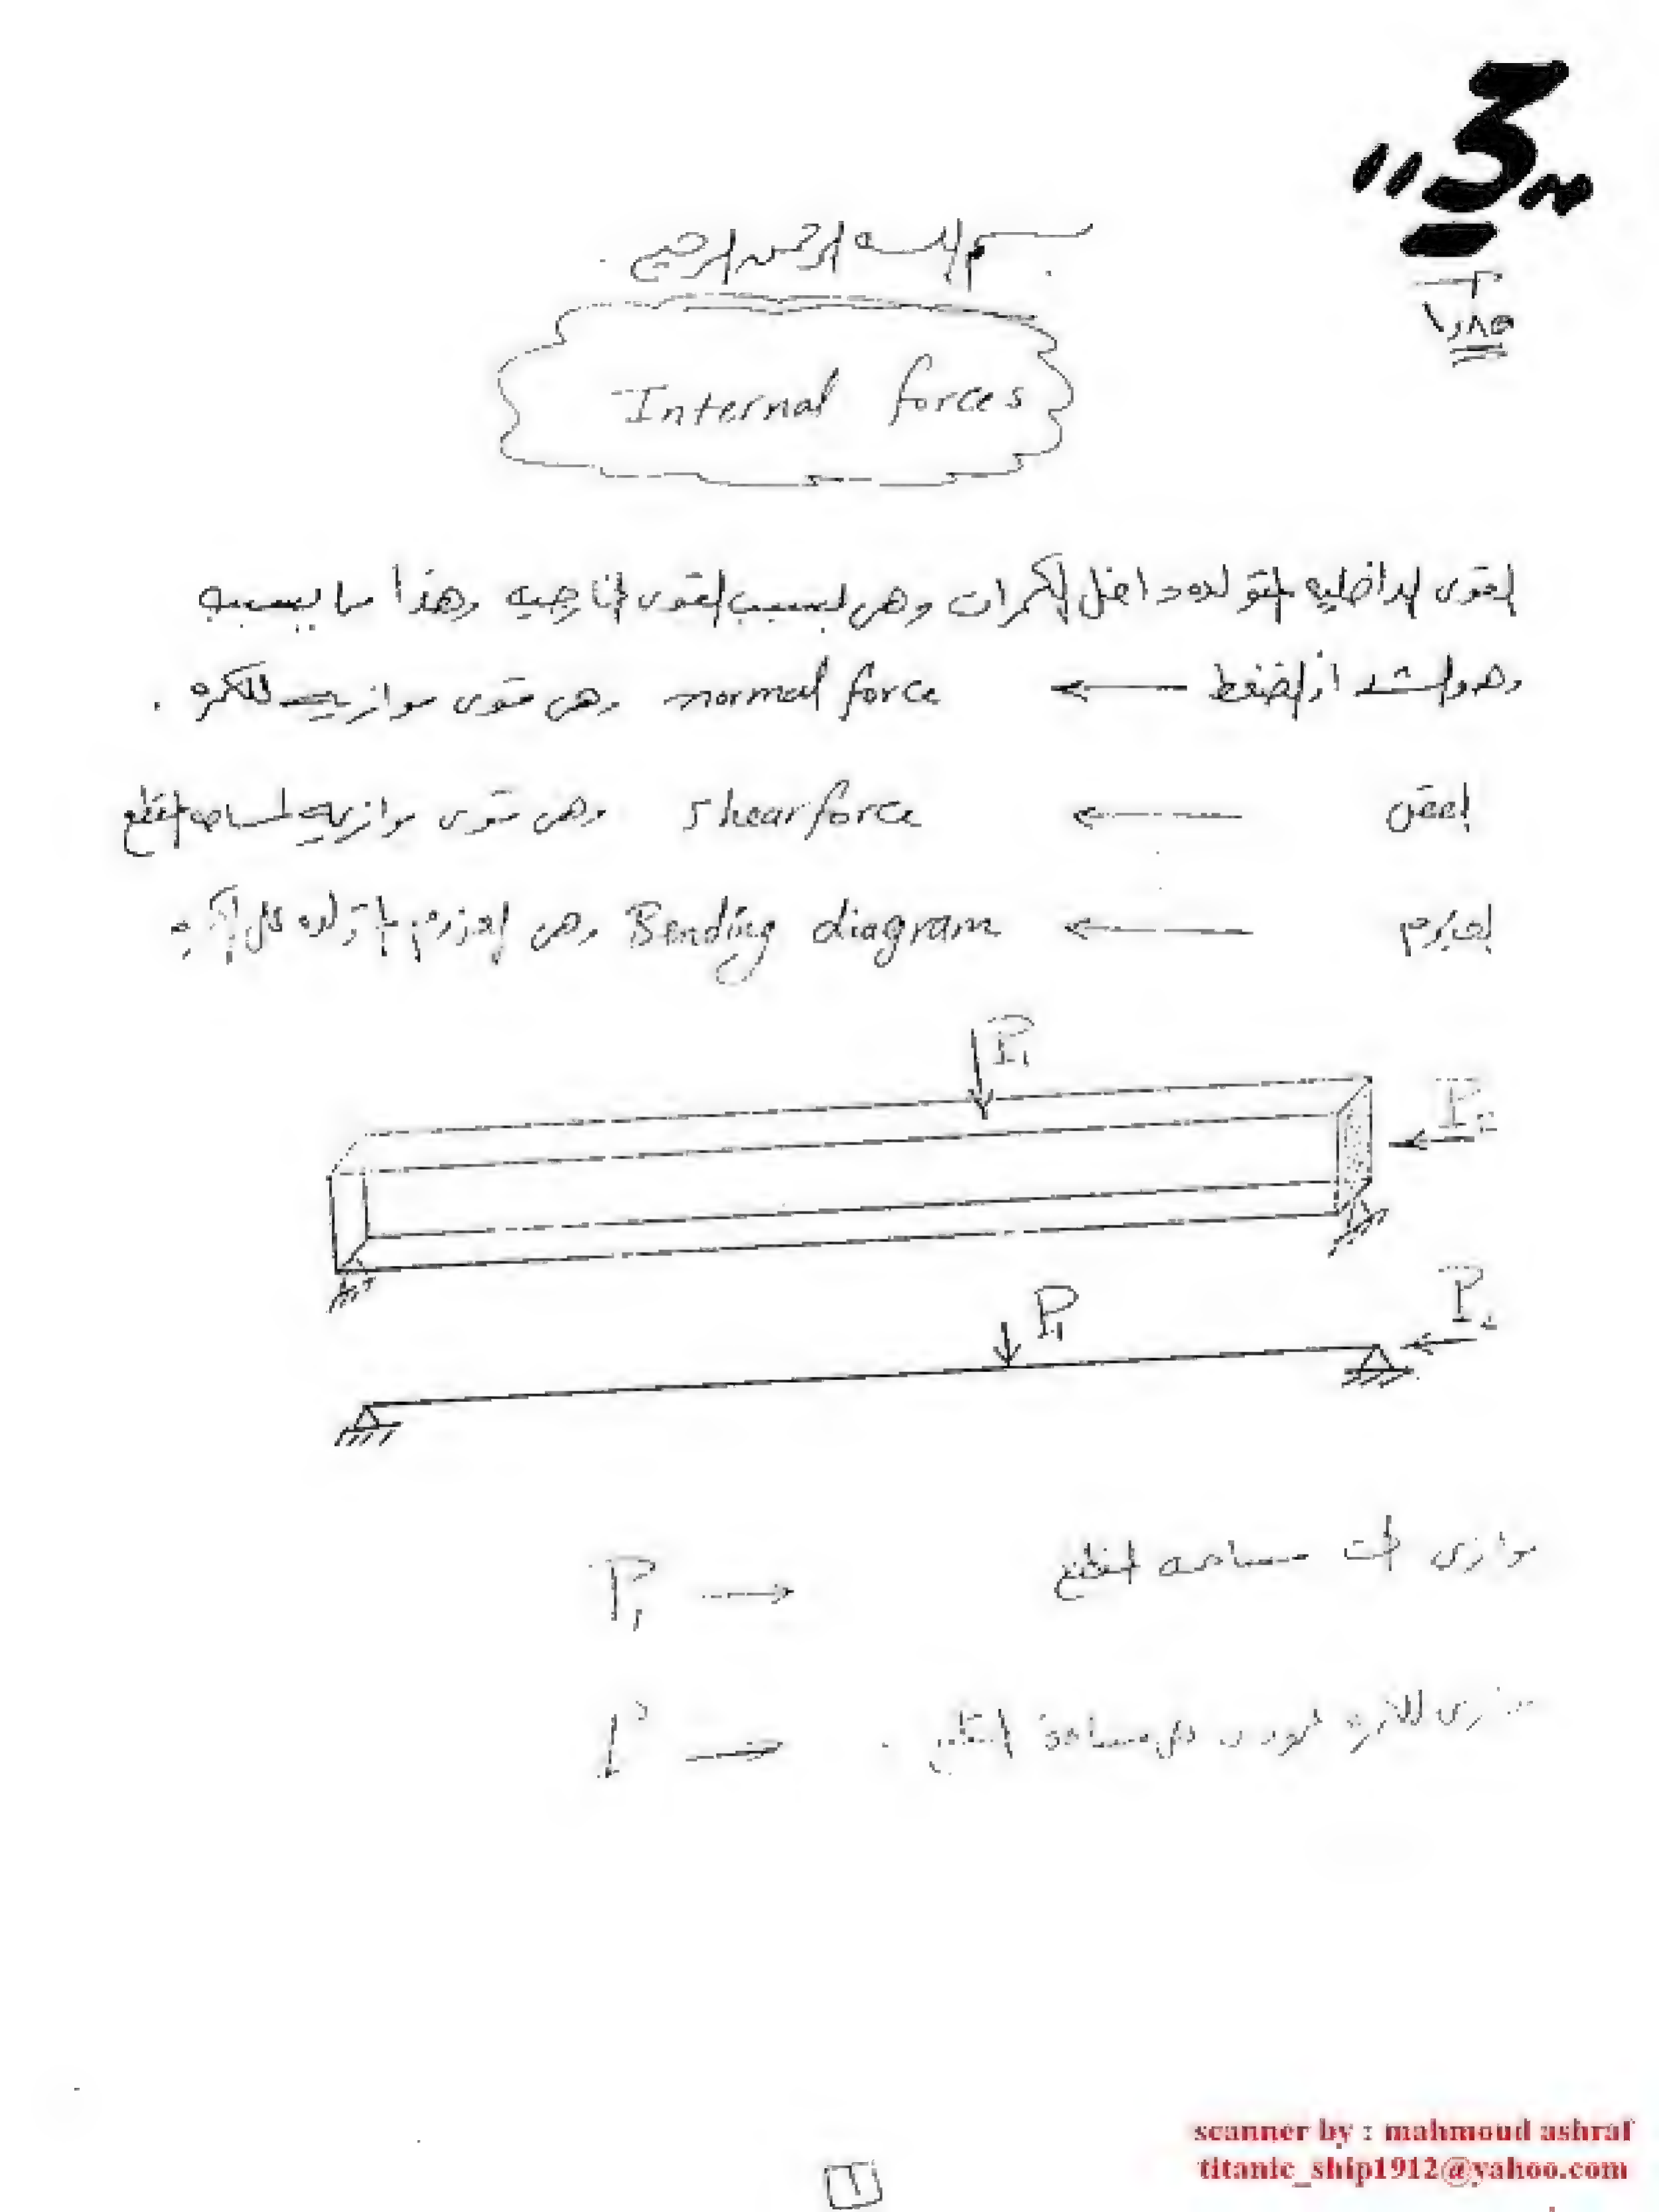 "3"
١,٨٥
بسم الله الرحمن الرحيم
Internal forces
القوى الداخليه المتولده داخل الكمرات وهى بسبب القوى الخارجيه وهذا ما يسببه
وهو الشد أو الضغط ← normal force وهى قوى موازيه للكمره .
القص ← shear force وهى قوى موازيه لمساحه المقطع
العزم ← Bending diagram وهى العزوم المتولده على الكمره
P₁
P₂
P₁
P₂
P₁ → موازى مساحه المقطع
P → موازى للكمره عمودى على مساحة المقطع .
scanner by : mahmoud ashraf
titanic_ship1912@yahoo.com
1